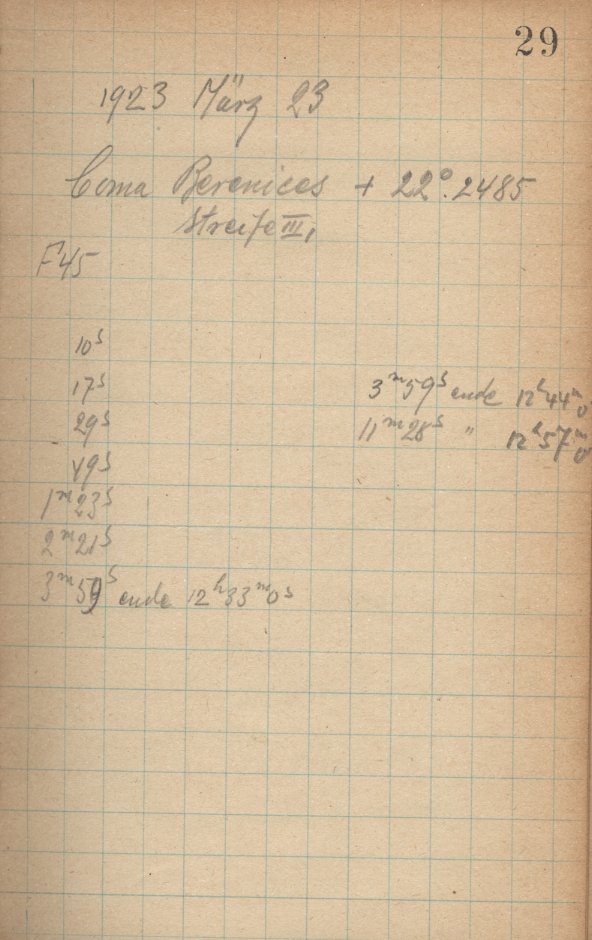 29
1923 März 23
Coma Berenices + 22°.2485
Streife III,
F45
10ˢ
17ˢ
29ˢ
49ˢ
1ᵐ23ˢ
2ᵐ21ˢ
3ᵐ59ˢ ende 12ʰ33ᵐ0ˢ
3ᵐ59ˢ ende 12ʰ44ᵐ0
11ᵐ28ˢ " 12ʰ57ᵐ0